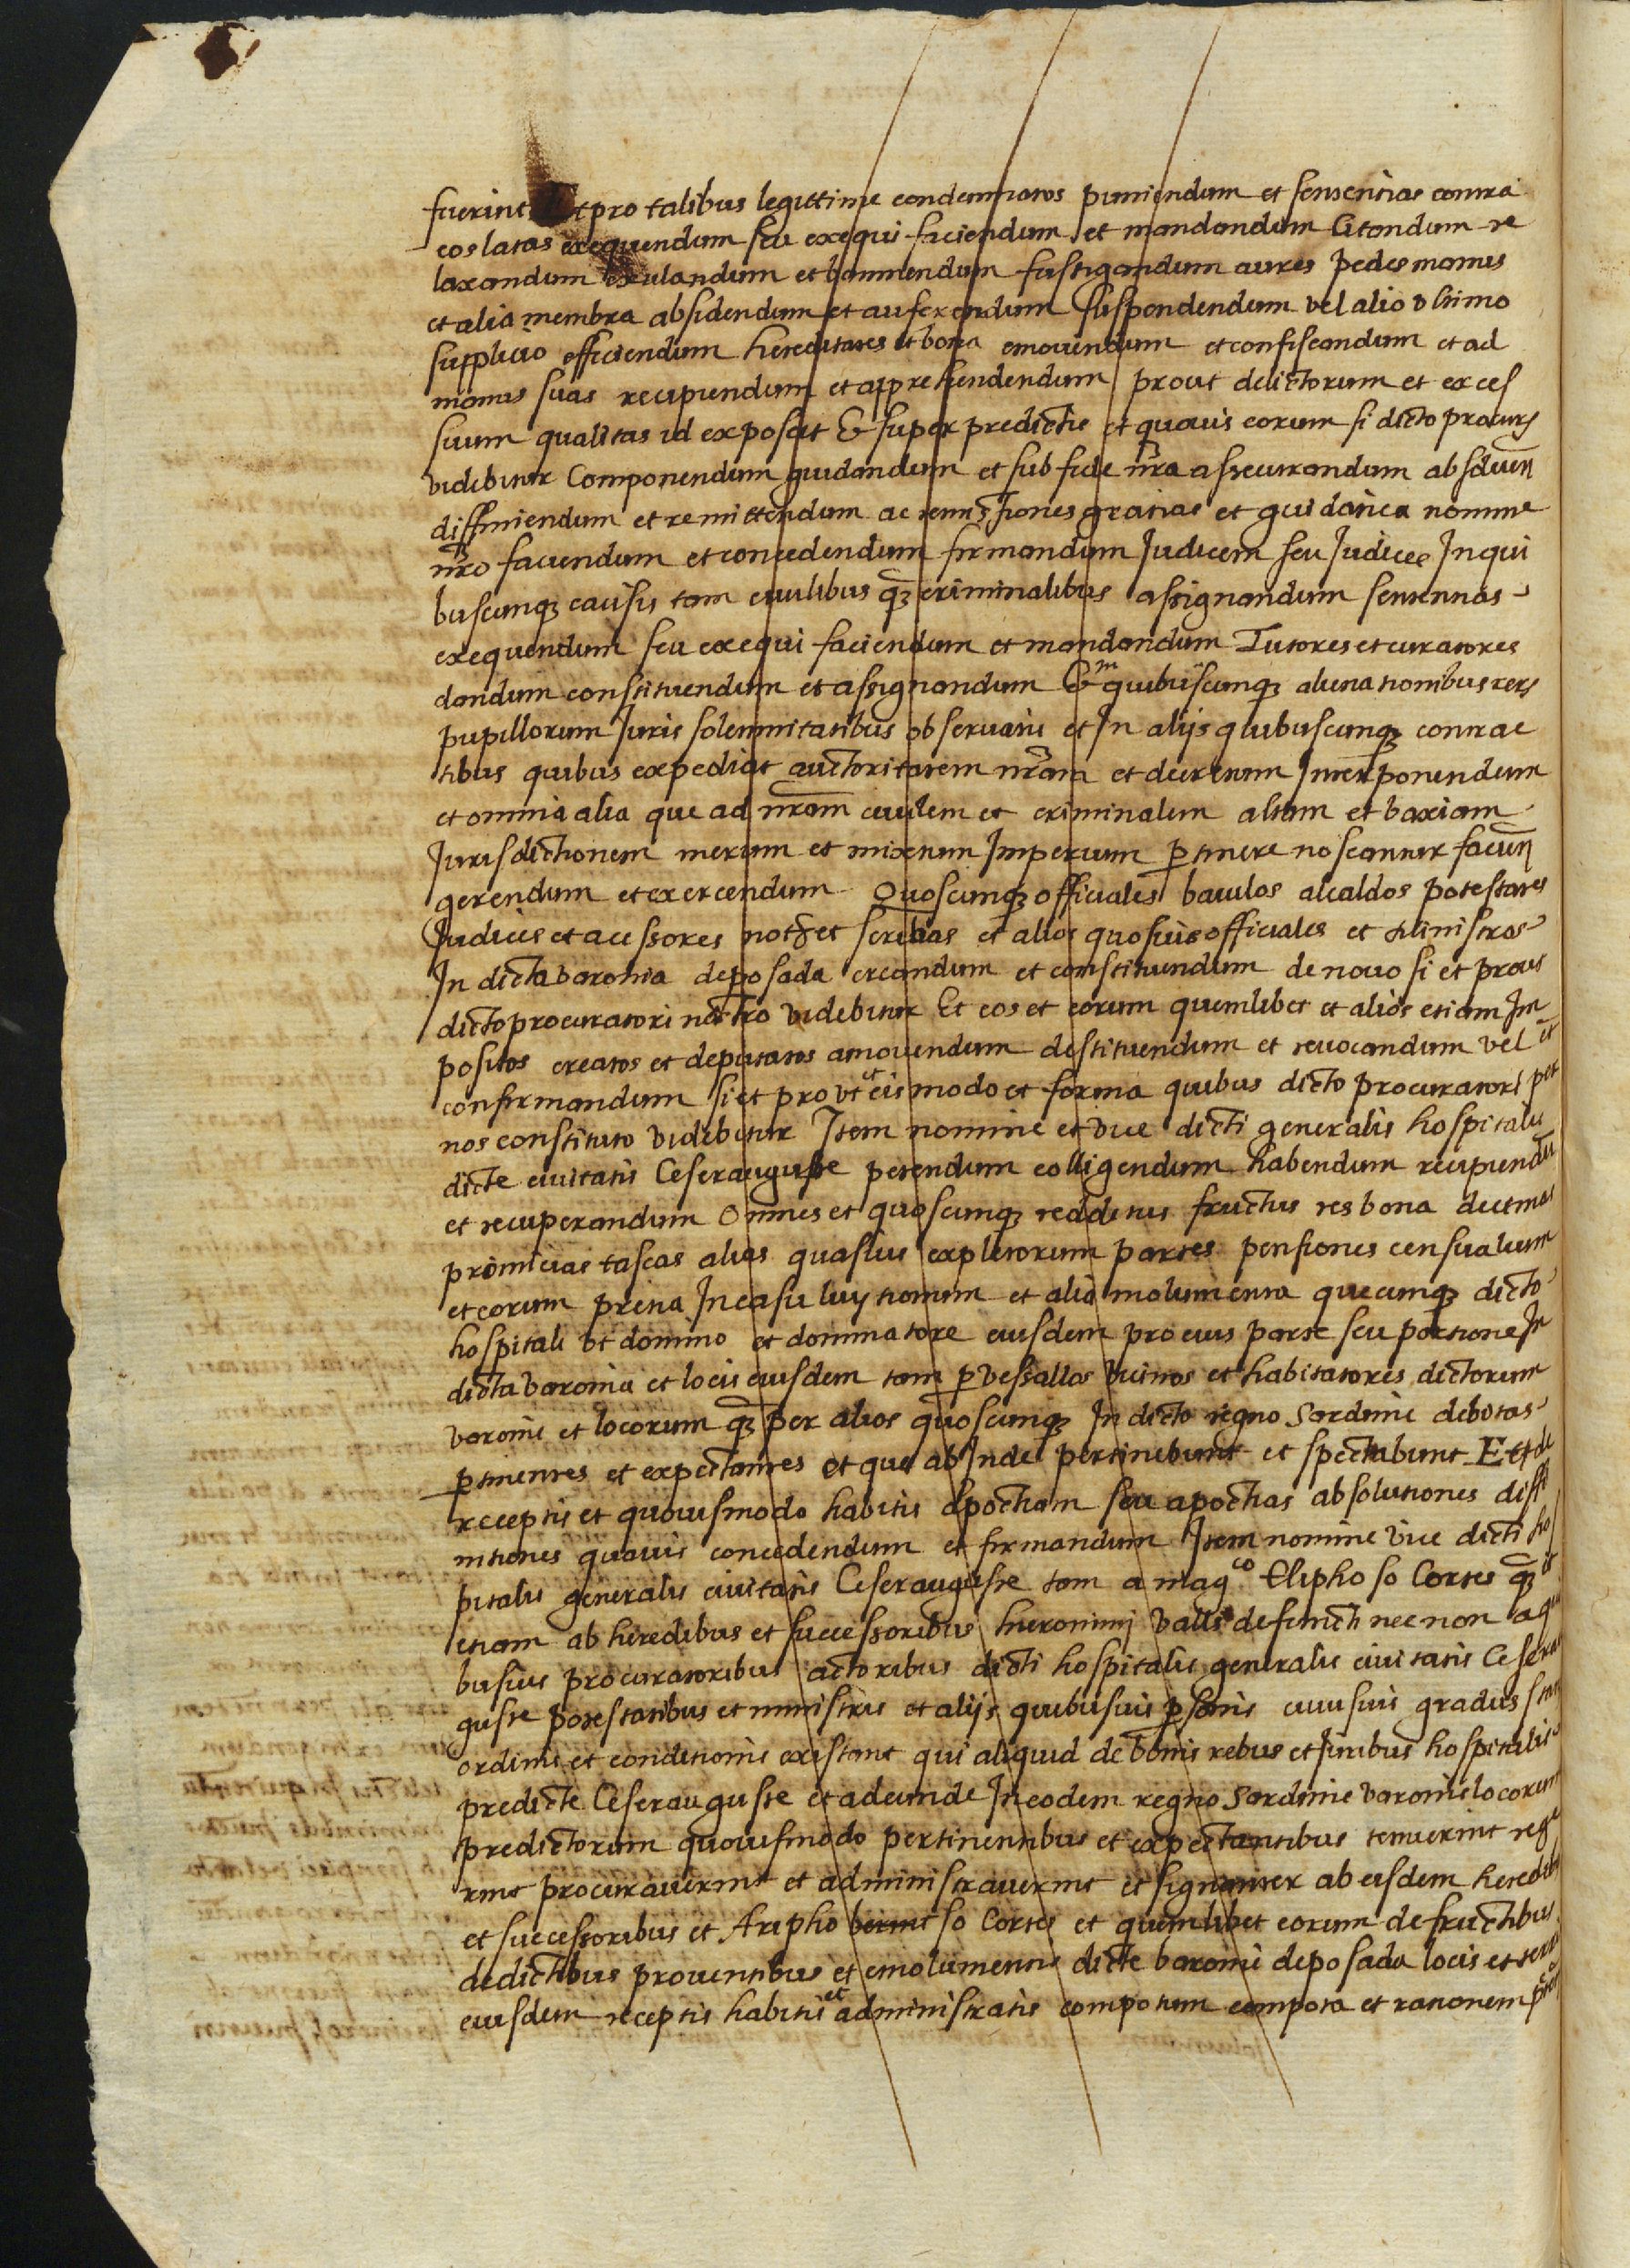 fuerint Et pro talibus legittime condemnatos puniendum et sentencias contra
eos latas exequendum seu exequi faciendum et mandandum Citandum re
laxandum exulandum et banniendum fustigandum aures pedes manus
et alia membra absidendum et auferendum suspendendum vel alio vltimo
supplicio officiendum hereditates et bona emouendum et confiscandum et ad
manus suas recipiendum et apprehendendum prout delictorum et exces
suum qualitas id exposcit & super predictis et quouis eorum si dicto procurꝭ
videbitur Componendum guidandum et sub fide nr̃a assecurandum absoluen̄
diffiniendum et remittendum ac remissiones gracias et guidatica nomine
nr̃o faciendum et concedendum firmandum Judicem seu Judices In qui
buscunqꝫ causis tam ciuilibus qꝫ criminalibus assignandum sentencias
exequendum seu exequi faciendum et mandandum Tutores et curatores
dandum constituendum et assignandum & in quibuscunqꝫ alienationibus reꝝ
pupillorum Juris solemnitatibus obseruatis et In alijs quibuscunqꝫ contrac
tibus quibus expediat auctoritatem nr̃am et decretum Interponendum
et omnia alia que ad nr̃am ciuilem et criminalem altam et baxiam
Jurisdictionem merum et mixtum Imperium ꝑtinere noscantur facien̄
gerendum et exercendum Quoscunqꝫ officiales baiulos alcaldos potestates
Judices et acessores not et scribas et alios quosuis officiales et Ministros
In dicta baronia de posada creandum et constituendum de nouo si et prout
dicto procuratori nostro videbitur Et eos et eorum quemlibet et alios etiam Im
positos creatos et deputatos amouendum destituendum et reuocandum vel et
confirmandum si et pro vt et eis modo et forma quibus dicto procuratori per
nos constituto videbitur Item nomine et vice dicti generalis hospitalis
dicte ciuitatis Ceserauguste petendum colligendum habendum recipiendū
et recuperandum Omnes et quoscunqꝫ redditus fructus res bona decimas
primicias tascas alias quasuis expletorum partes pensiones censualium
et eorum precia In casu luytionum et alia molumenta quecunqꝫ dicto
hospitali vt domino et dominatore eiusdem pro eius parte seu portione In
dicta baronia et locis eiusdem tam ꝑ vessallos vicinos et habitatores dictorum
baronie et locorum qꝫ per alios quoscunqꝫ In dicto regno Sardinie debitas
ꝑtinentes et expectantes et que ab Inde pertinebunt et spectabunt Et de
receptis et quouismodo habitis apocham seu apochas absolutiones diffi
nitiones quouis concedendum et firmandum Item nomine vice dicti hos
pitalis generalis ciuitatis Ceserauguste tam a mag.co Elipho so Cortes qꝫ et
etiam ab heredibus et successoribus hieronimi valls defuncti nec non a qui
busuis procuratoribus actoribus dicti hospitalis generalis ciuitatis Cesera
guste potestatibus et ministris et alijs quibusuis ꝑsonis cuiusuis gradus stat
ordinis et conditionis existant qui aliquid de bonis rebus et Juribus hospitalis
predicte Ceserauguste et ad eum de In eodem regno Sardinie baronie locorum
predictorum quouismodo pertinentibus et expectantibus tenuerint rege
rint procurauerint et administrauerint et signanter ab eisdem heredibꝫ
et successoribus et Aripho so Cortes et quemlibet eorum de fructibus
de dictibus prouentibus et emolumentis dicte baronie de posada locis et terre
eiusdem receptis habitis et administratis compotum compota et rationem